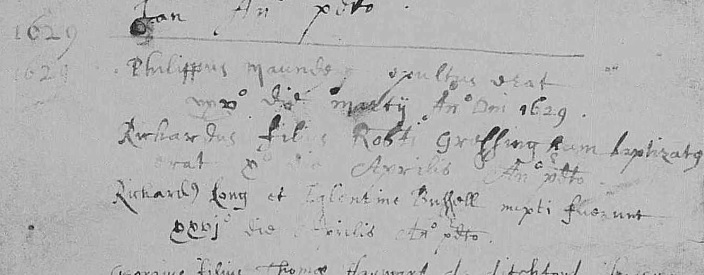 Jan Ano pdto
1629
1629 Philippus Maunde sepultus erat
xxvo die Martij Ano Dni 1629.
Richardus filius Robti Gressingham baptizatus
erat xo die Aprilis Ano pdto
Richardus Long et Eglentine Bussell nupti fuerunt
xxvjo die Aprilis Ano pdto.
Georgius filius Thome Haywart de